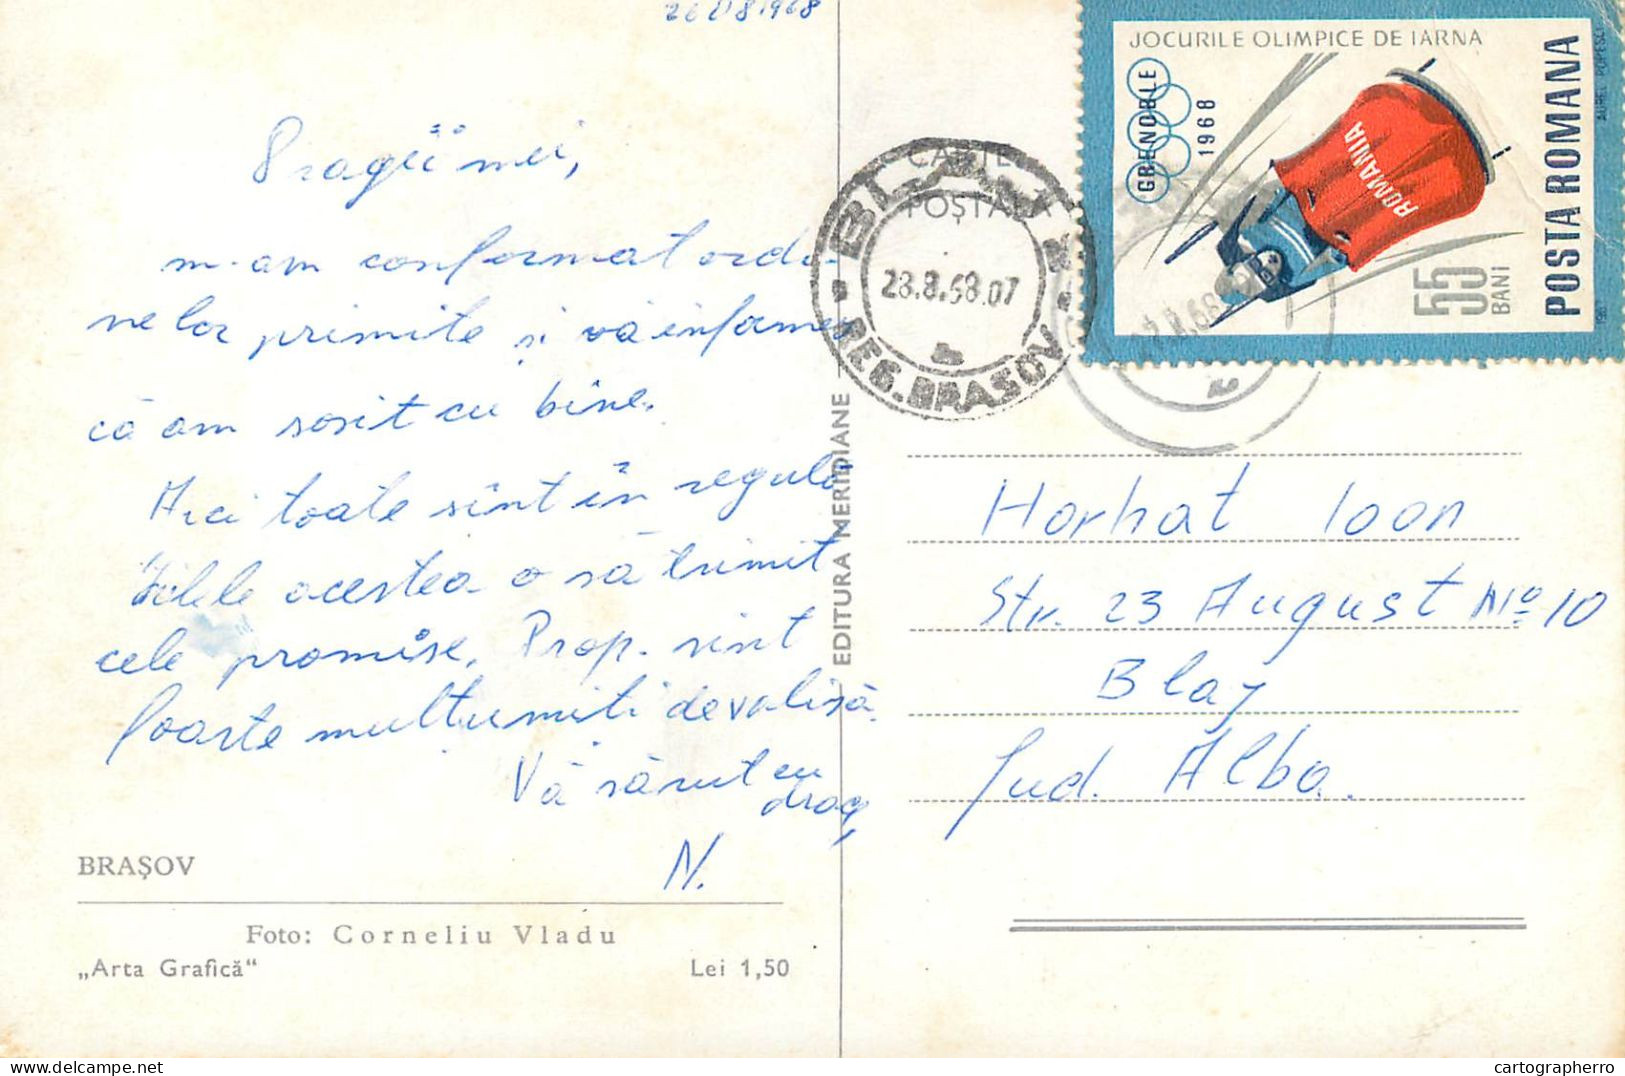 26 08 1968
Dragii mei,
m-am conformat ordi-
nelor primite și vă informez
că am sosit cu bine.
Aici toate sînt în regulă
Zilele acestea o să trimit
cele promise. Prop. sînt
foarte mulțumiți de valiză.
Vă sărut cu
drag,
N.
BRAȘOV
Foto: Corneliu Vladu
„Arta Grafică“
Lei 1,50
EDITURA MERIDIANE
CARTE
POȘTALĂ
BLAJ
28.8.68.07
REG. BRASOV
JOCURILE OLIMPICE DE IARNA
GRENOBLE
1968
ROMANIA
55
BANI
POSTA ROMANA
AUREL POPESCU
1967
Horhat Ioan
Str. 23 August No 10
Blaj
Jud. Alba.
cartographerro